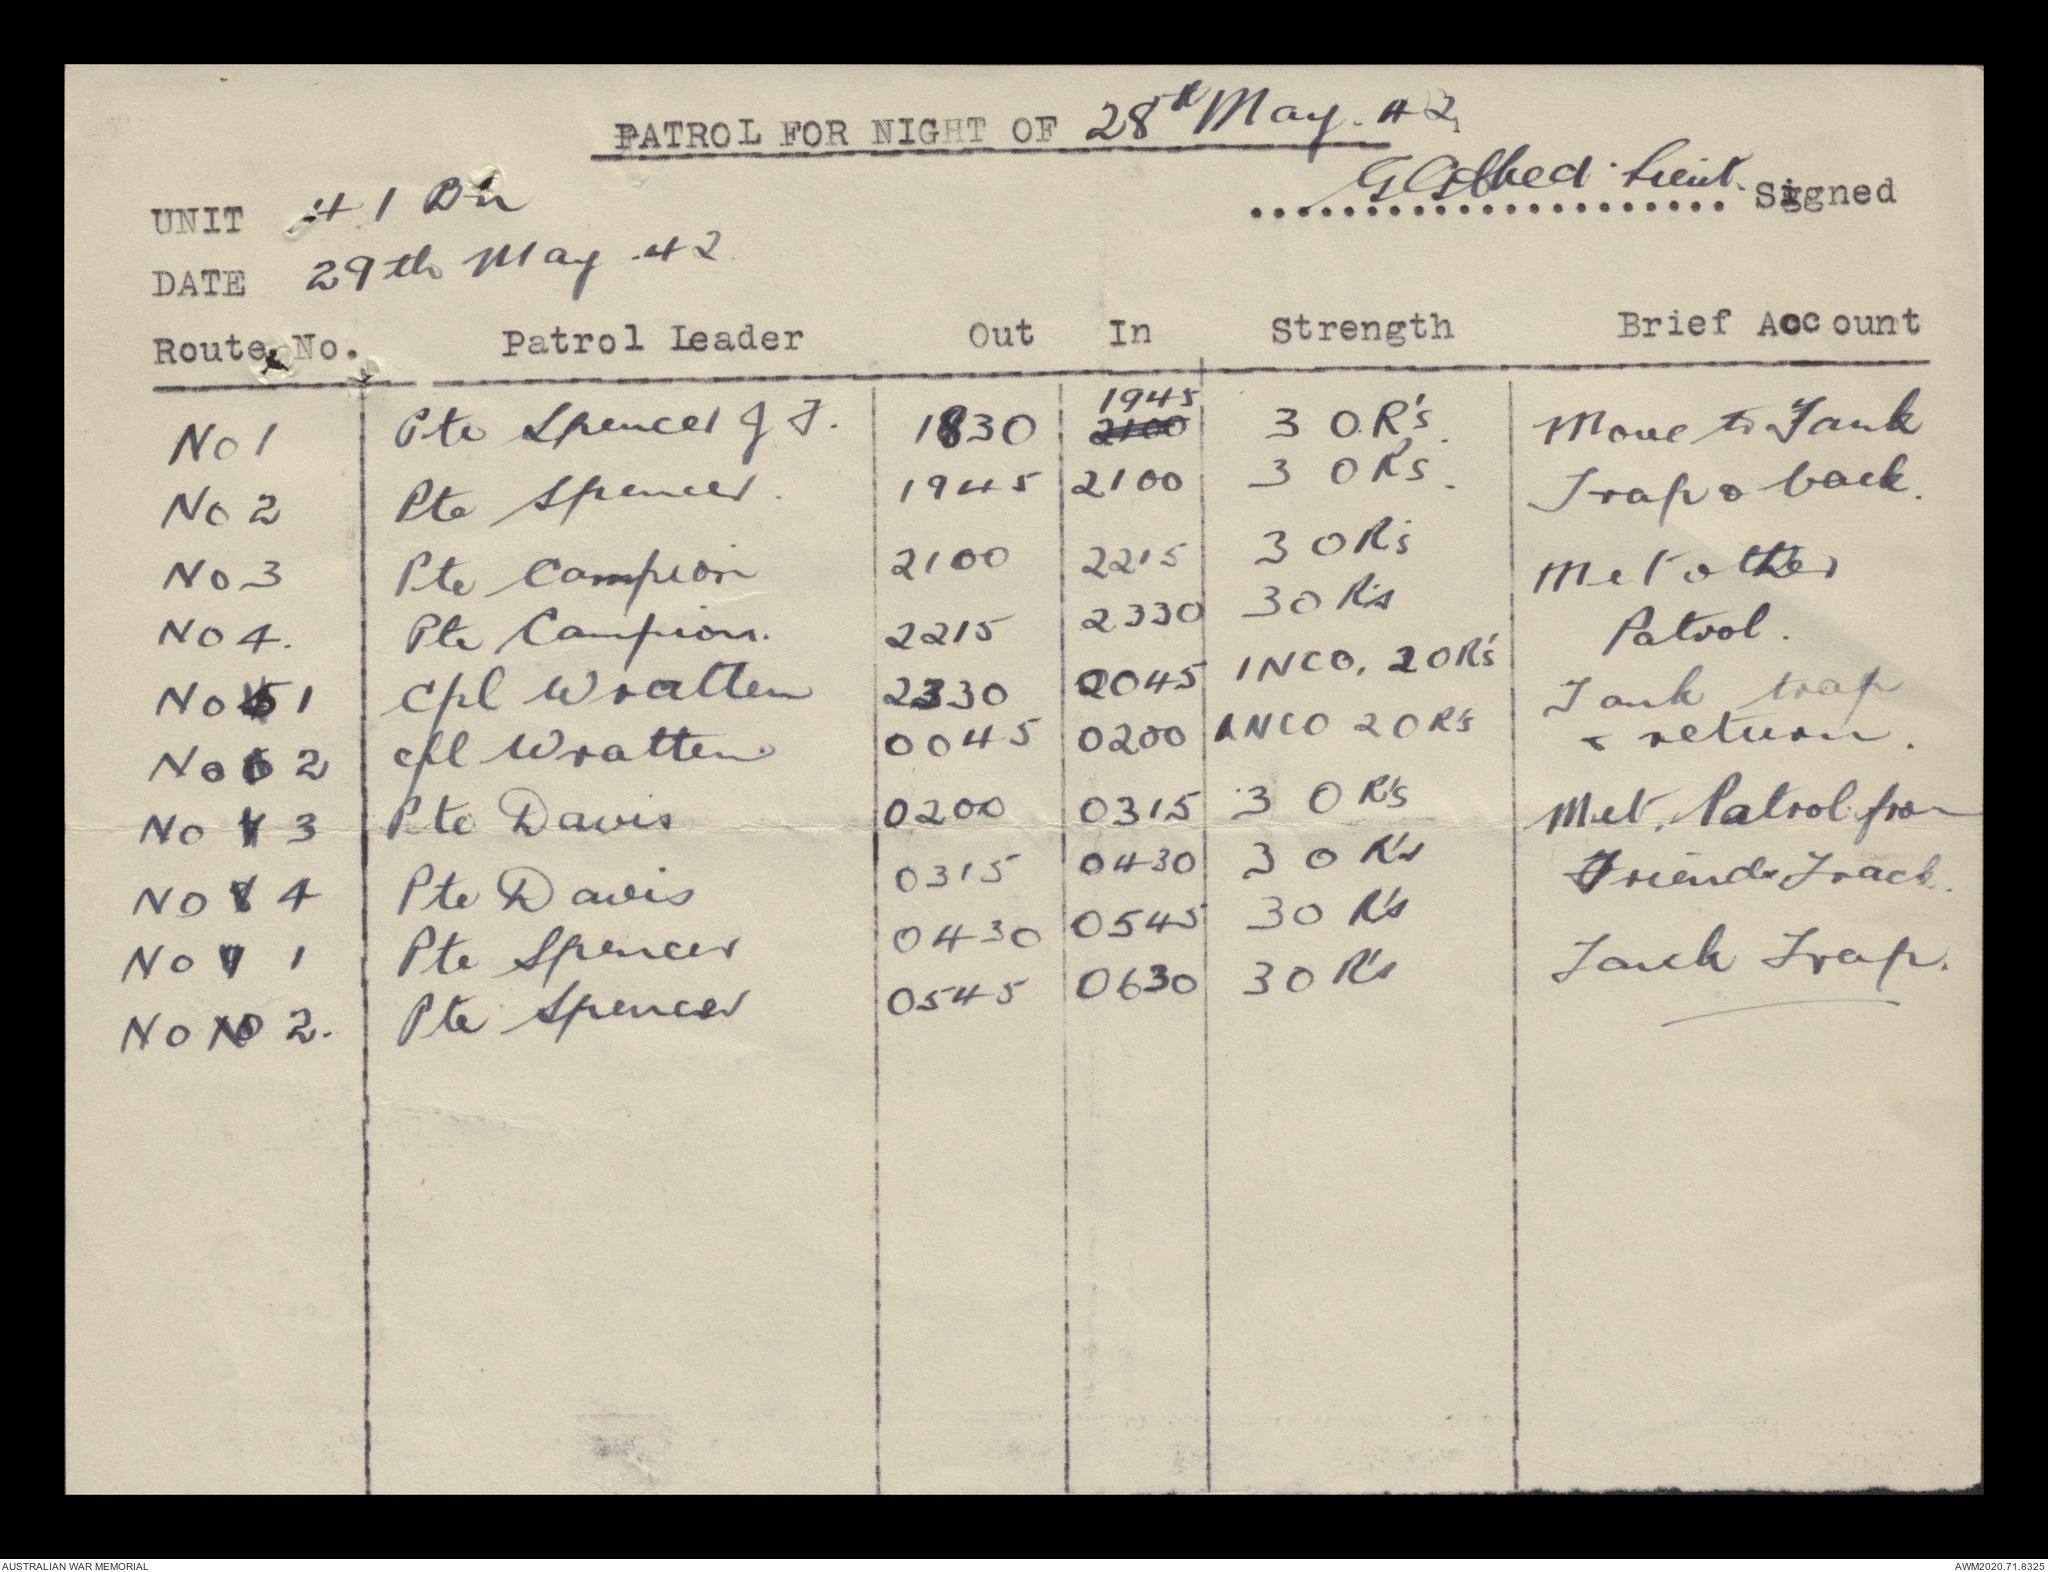 PATROL FOR NIGHT OF 28th May. 42
Lieut. Signed
UNIT 41 Bn
DATE 29th May. 42
Route No. Patrol Leader Out In Strength Brief Account
1945
No 1 Pte Spencer J F. 1830 2100 3 O.R's. Move to Tank
No 2 Pte Spencer. 1945 2100 3 O R's. Trap & back.
No 3 Pte Campion 2100 2215 3 O R's Met other
No 4. Pte Campion. 2215 2330 3 O R's Patrol.
No 5 1 Cpl Wratten 2330 0045 1 NCO. 2 O R's Tank trap
No 6 2 Cpl Wratten. 0045 0200 1 NCO 2 O R's & return.
No 7 3 Pte Davis 0200 0315 3 O R's Met. Patrol from
No 8 4 Pte Davis 0315 0430 3 O R's Friends Track.
No 9 1 Pte Spencer 0430 0545 3 O R's Tank Trap.
No 10 2. Pte Spencer 0545 0630 3 O R's
AUSTRALIAN WAR MEMORIAL AWM2020.71.8325